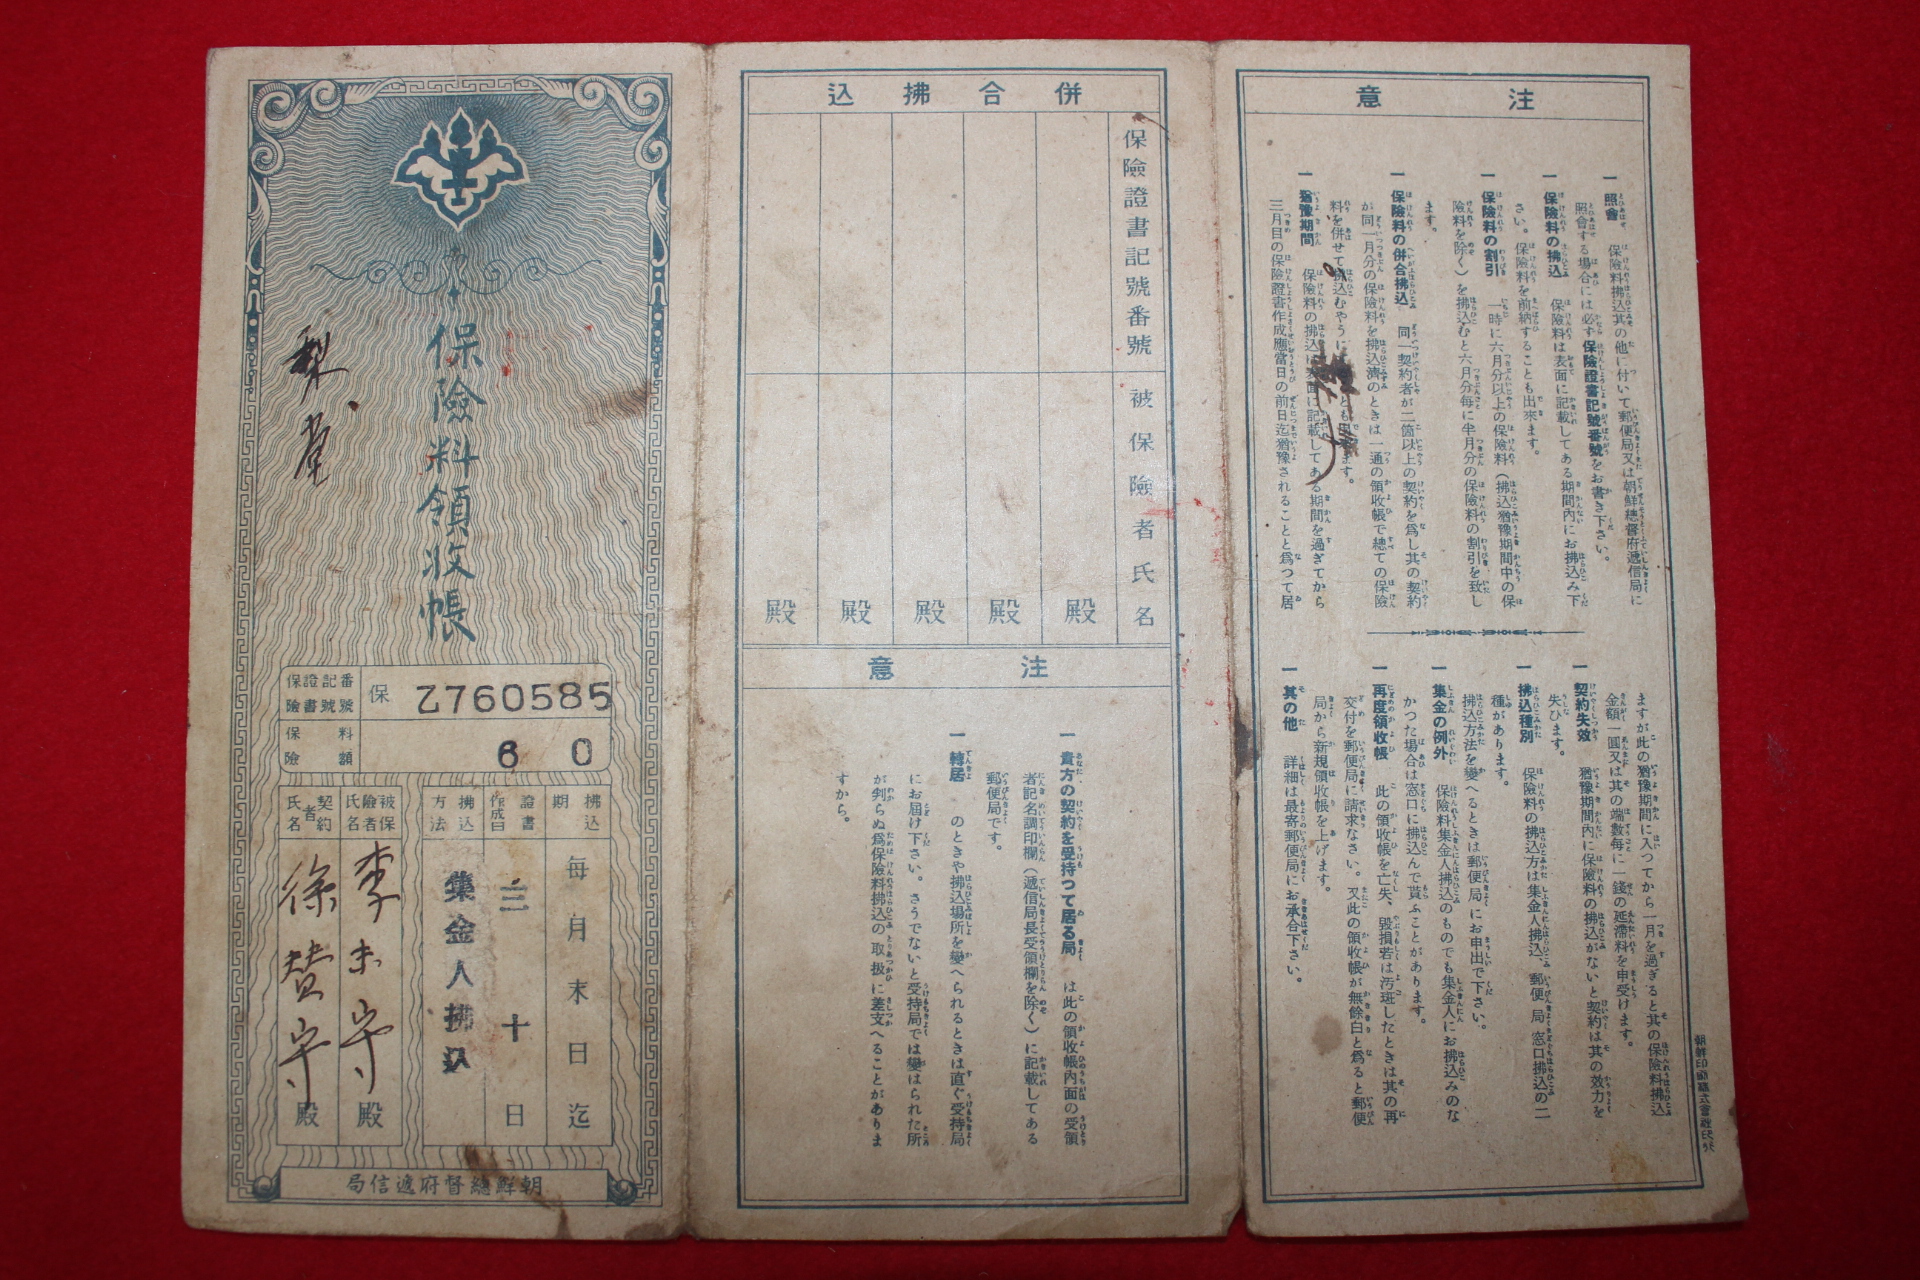 保險料領收帳
梨堂
保險證書記號番號
保 乙760585
保險料額
60
拂込期
每月末日迄
證書作成日
三十日
拂込方法
集金人拂込
被保險者氏名
李未守殿
契約者氏名
徐賛守殿
朝鮮總督府遞信局
併合拂込
保險證書記號番號
被保險者氏名
殿
殿
殿
殿
殿
注意
一 貴方の契約を受持つて居る局 は此の領收帳內面の受領
者記名調印欄（遞信局長受領欄を除く）に記載してある
郵便局です。
一 轉居 のときや拂込場所を變へられるときは直ぐ受持局
にお屆け下さい。さうでないと受持局では變はられた所
が判らぬ爲保險料拂込の取扱に差支へることがありま
すから。
注意
一 照會 保險料拂込其の他に付いて郵便局又は朝鮮總督府遞信局に
照會する場合には必ず保險證書記號番號をお書き下さい。
一 保險料の拂込 保險料は表面に記載してある期間內にお拂込み下
さい。保險料を前納することも出來ます。
一 保險料の割引 一時に六月分以上の保險料（拂込猶豫期間中の保
險料を除く）を拂込むと六月分每に半月分の保險料の割引を致し
ます。
一 保險料の併合拂込 同一契約者が二箇以上の契約を爲し其の契約
が同一月分の保險料を拂込濟のときは一通の領收帳で總ての保險
料を併せて拂込むやうに
一 猶豫期間 保險料の拂込は表面に記載してある期間を過ぎてから
三月目の保險證書作成應當日の前日迄猶豫されることと爲つて居
ますが此の猶豫期間に入つてから一月を過ぎると其の保險料拂込
金額一圓又は其の端數每に一錢の延滯料を申受けます。
一 契約失效 猶豫期間內に保險料の拂込がないと契約は其の效力を
失ひます。
一 拂込種別 保險料の拂込方は集金人拂込、郵便局窓口拂込の二
種があります。
拂込方法を變へるときは郵便局にお申出で下さい。
一 集金の例外 保險料集金人拂込のものでも集金人にお拂込みのな
かつた場合は窓口に拂込んで貰ふことがあります。
一 再度領收帳 此の領收帳を亡失、毀損若は汚斑したときは其の再
交付を郵便局に請求なさい。又此の領收帳が無餘白と爲ると郵便
局から新規領收帳を上げます。
一 其の他 詳細は最寄郵便局にお承合下さい。